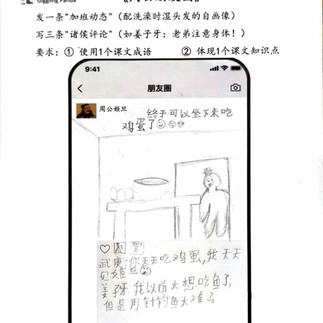 Giggling Panda
发一条"加班动态"（配洗澡时湿头发的自画像）
写三条"诸侯评论"（如姜子牙：老弟注意身体！）
要求：① 使用1个课文成语 ② 体现1个课文知识点
9:41
朋友圈
周公姬旦
终于可以坐下来吃
鸡蛋了
武庚：你天天吃鸡蛋，我天天
见
姜子牙 我以前太想吃鱼了，
但是用针钓鱼太难了